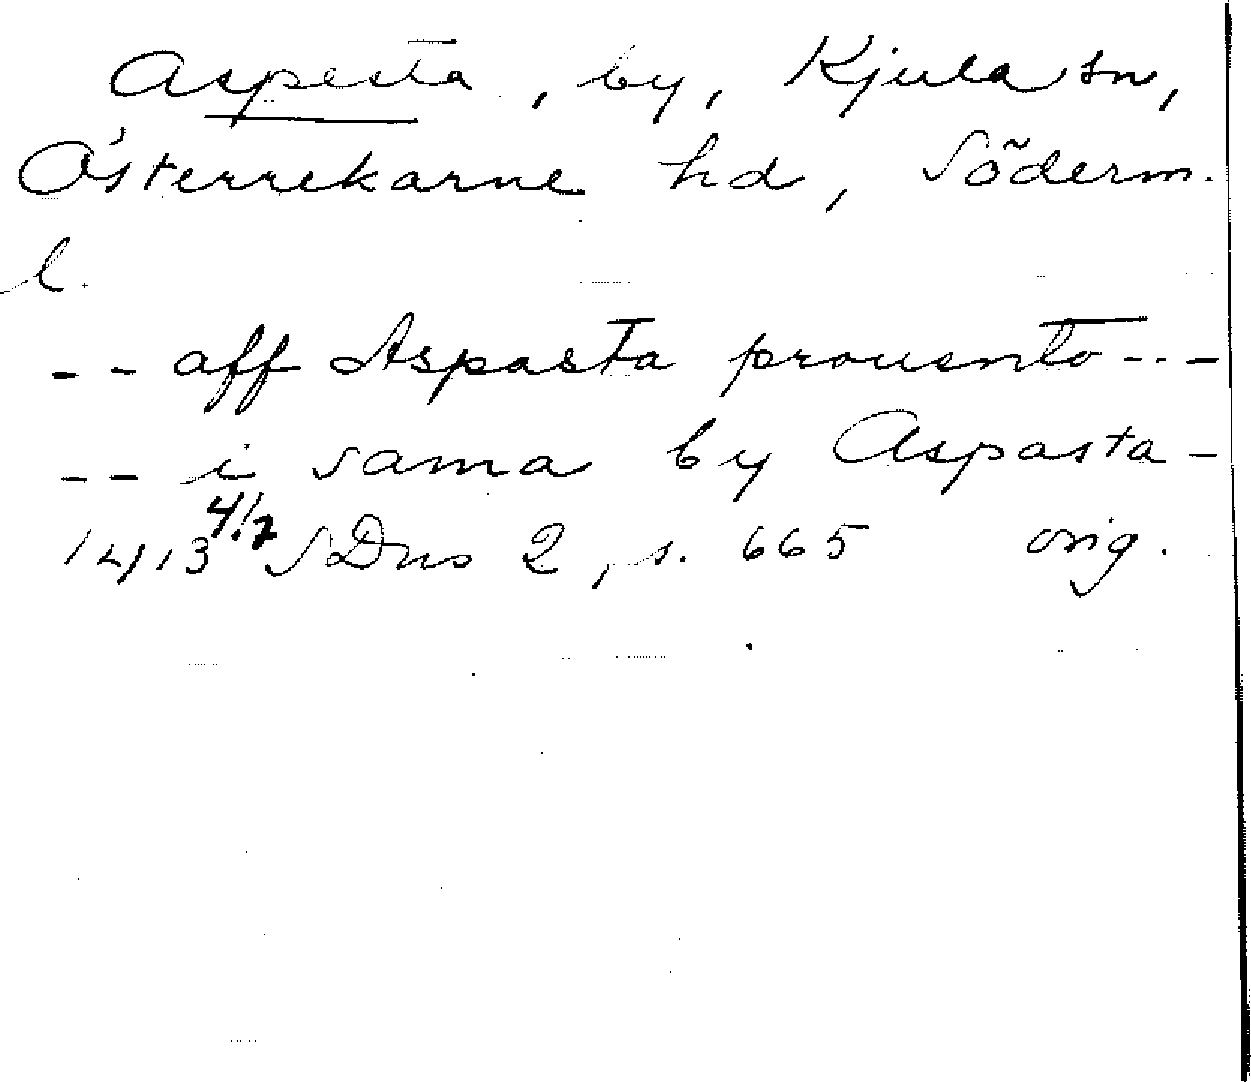 Aspesta, by, Kjula sn,
Österrekarne hd, Söderm.
l.
-- aff Aspasta prouento ---
-- i sama by Aspasta -
1413 4/7 SDns 2, s. 665 orig.